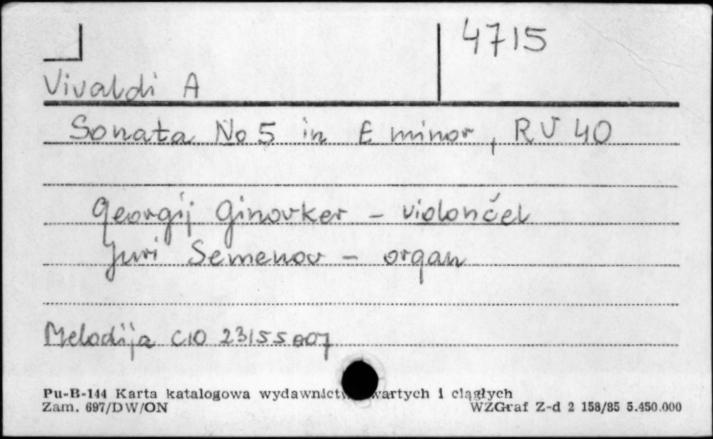 4715
Vivaldi A
Sonata No 5 in E minor, RV 40
Georgij Ginovker - violončel
Juri Semenov - organ
Melodija C10 23155 007
Pu-B-144 Karta katalogowa wydawnictw zwartych i ciągłych
Zam. 697/DW/ON WZGraf Z-d 2 158/85 5.450.000